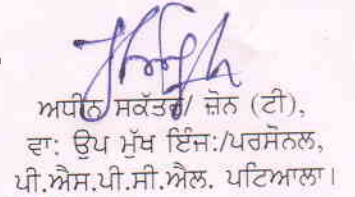 ਅਧੀਨ ਸਕੱਤਰ/ ਜ਼ੋਨ (ਟੀ),
ਵਾ: ਉਪ ਮੁੱਖ ਇੰਜ:/ਪਰਸੋਨਲ,
ਪੀ.ਐਸ.ਪੀ.ਸੀ.ਐਲ. ਪਟਿਆਲਾ।